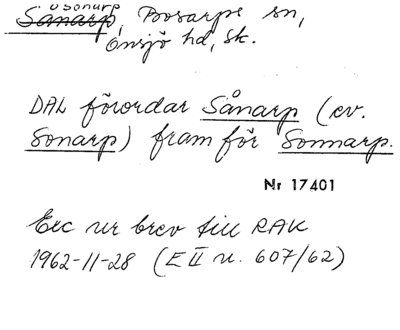 Osonarp
Sånarp, Bosarps sn,
Onsjö hd, Sk.
DAL förordar Sånarp (ev.
Sonarp) fram för Sonnarp.
Nr 17401
Exc ur brev till RAK
1962-11-28 (E II u. 607/62)